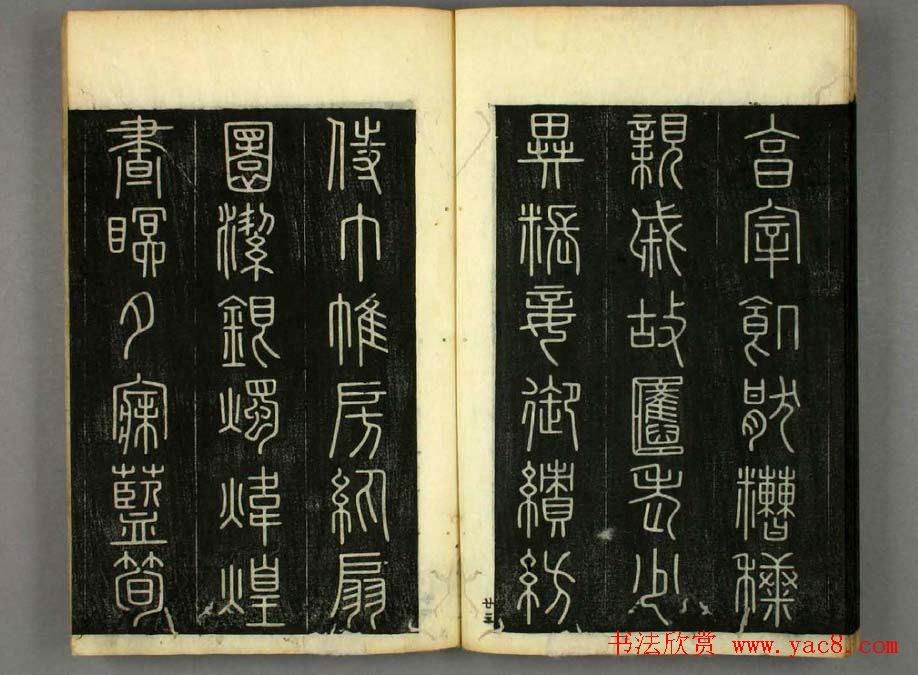 亯宰飢猒糟糠
親戚故舊老少
異粻妾御績紡
侍巾帷房紈扇
圓潔銀燭煒煌
晝瞑夕寐藍筍
廿三
书法欣赏 www.yac8.com